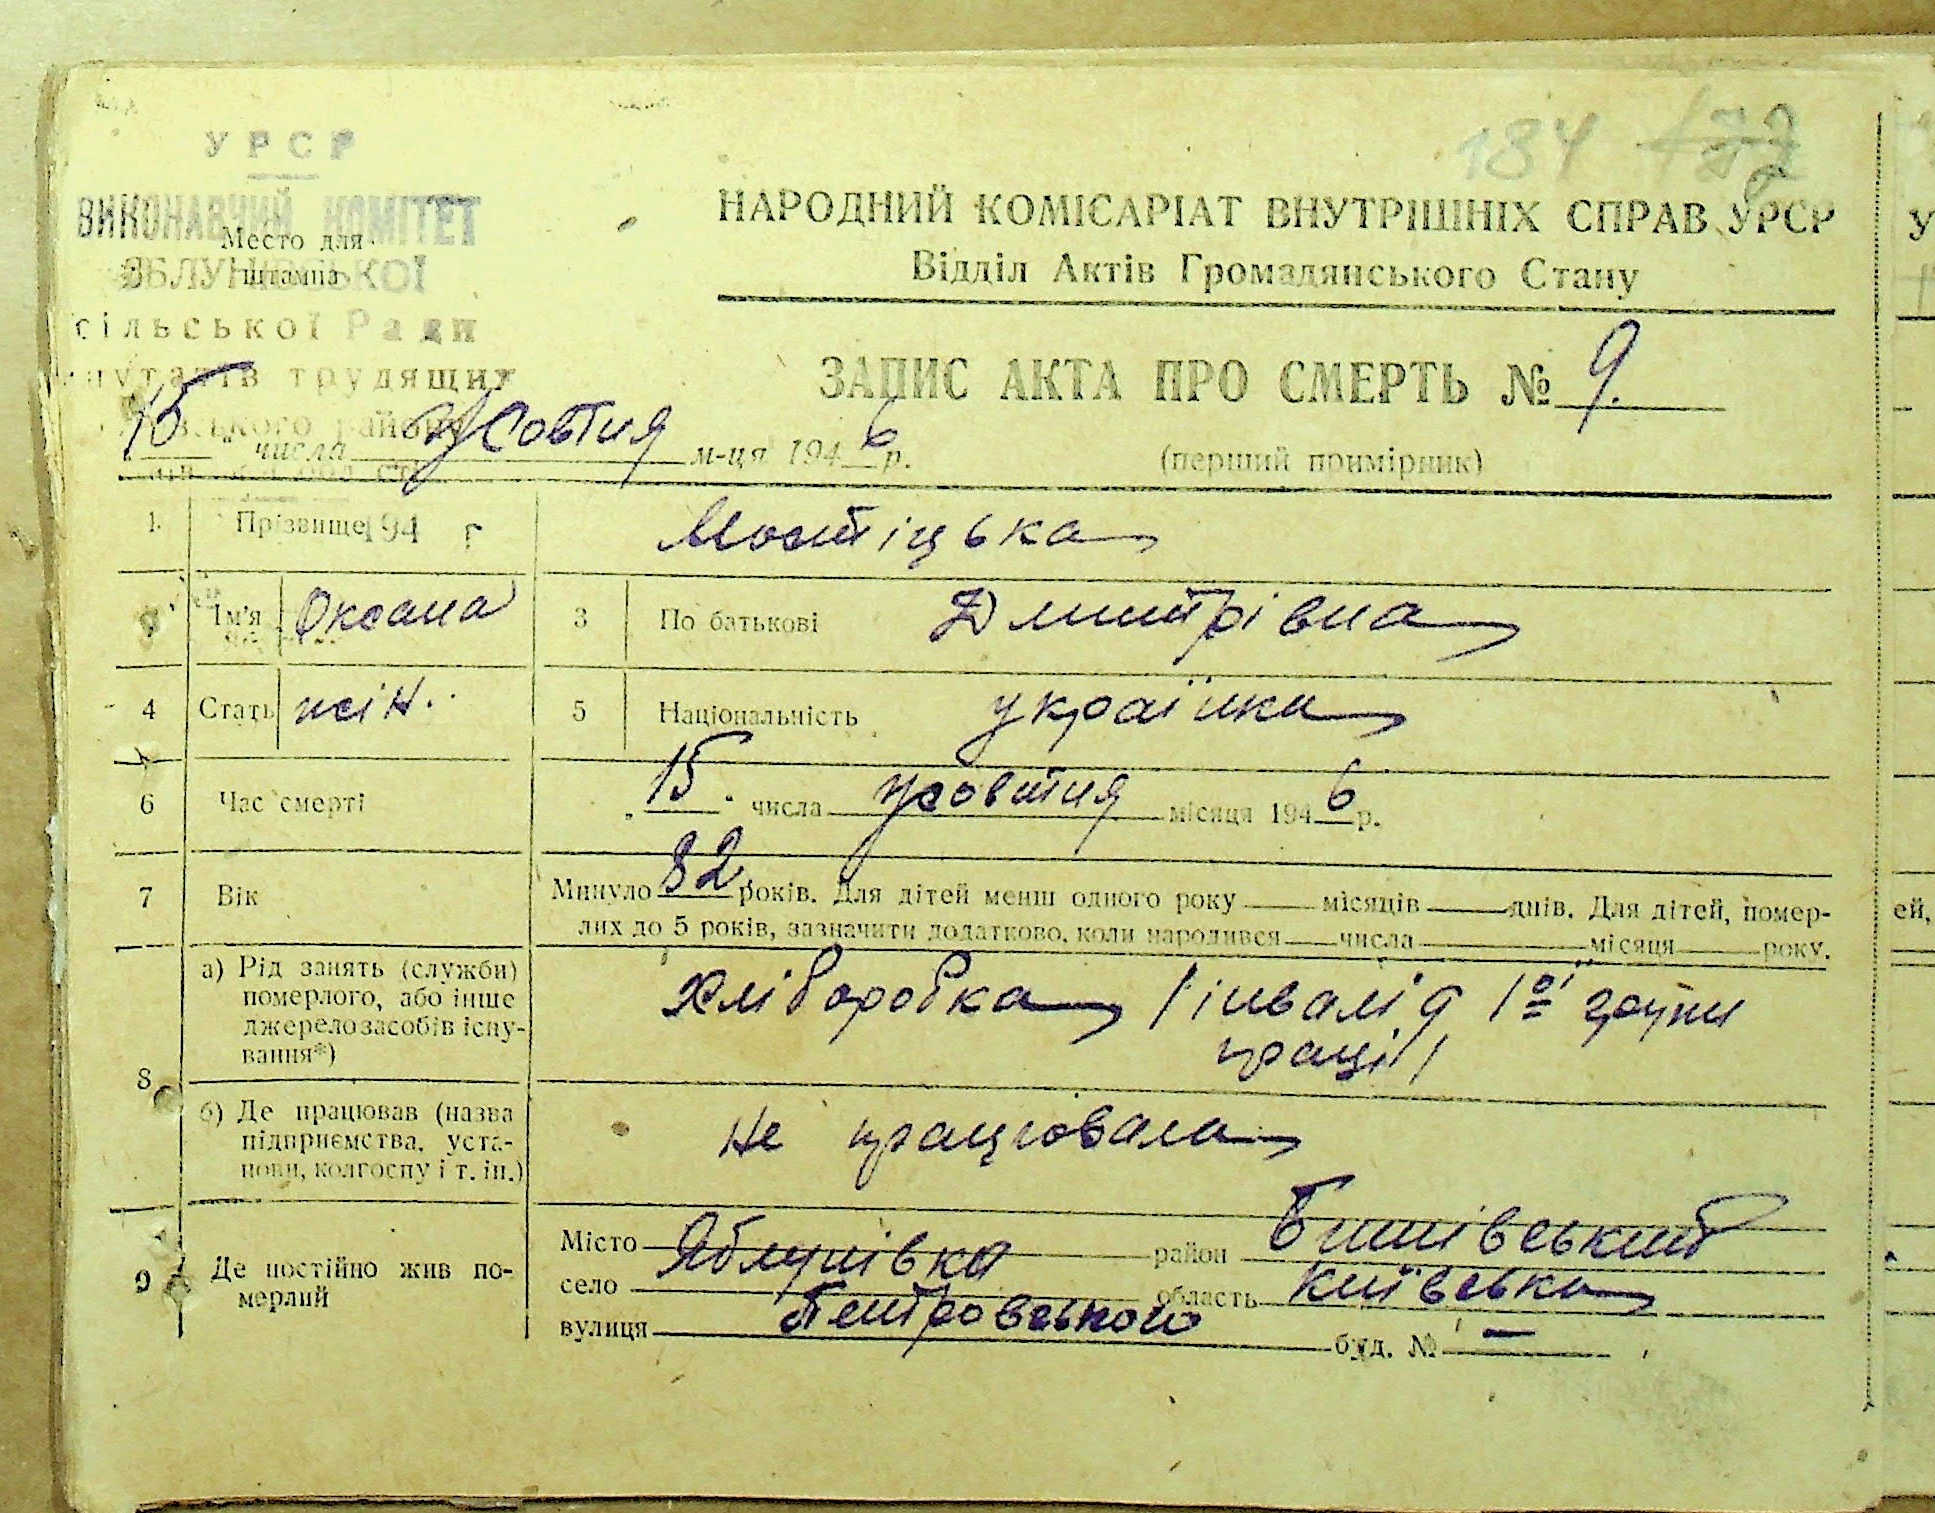 184
УРСР
ВИКОНАВЧИЙ КОМІТЕТ
Место для
штампа
ЯБЛУНІВСЬКОЇ
сільської Ради
депутатів трудящих
району
НАРОДНИЙ КОМІСАРІАТ ВНУТРІШНІХ СПРАВ УРСР
Відділ Актів Громадянського Стану
ЗАПИС АКТА ПРО СМЕРТЬ № 9.
„15" числа жовтня м-ця 1946 р.
(перший примірник)
1. Прізвище Мостіцька
194 г
2 Ім'я Оксана 3 По батькові Дмитрівна
4 Стать жін. 5 Національність українка
6 Час смерті „15" числа жовтня місяця 1946 р.
7 Вік Минуло 82 років. Для дітей менш одного року місяців днів. Для дітей, помер-
лих до 5 років, зазначити додатково, коли народився числа місяця року.
8 а) Рід занять (служби) померлого, або інше джерело засобів існу-вання*) Хліборобка /інвалід 1ої групи
праці/
б) Де працював (назва підприємства, уста-нови, колгоспу і т. ін.) Не працювала
9 Де постійно жив по-мерлий
Місто Яблунівка район Бишівський
село область Київська
вулиця Петровського буд. № —